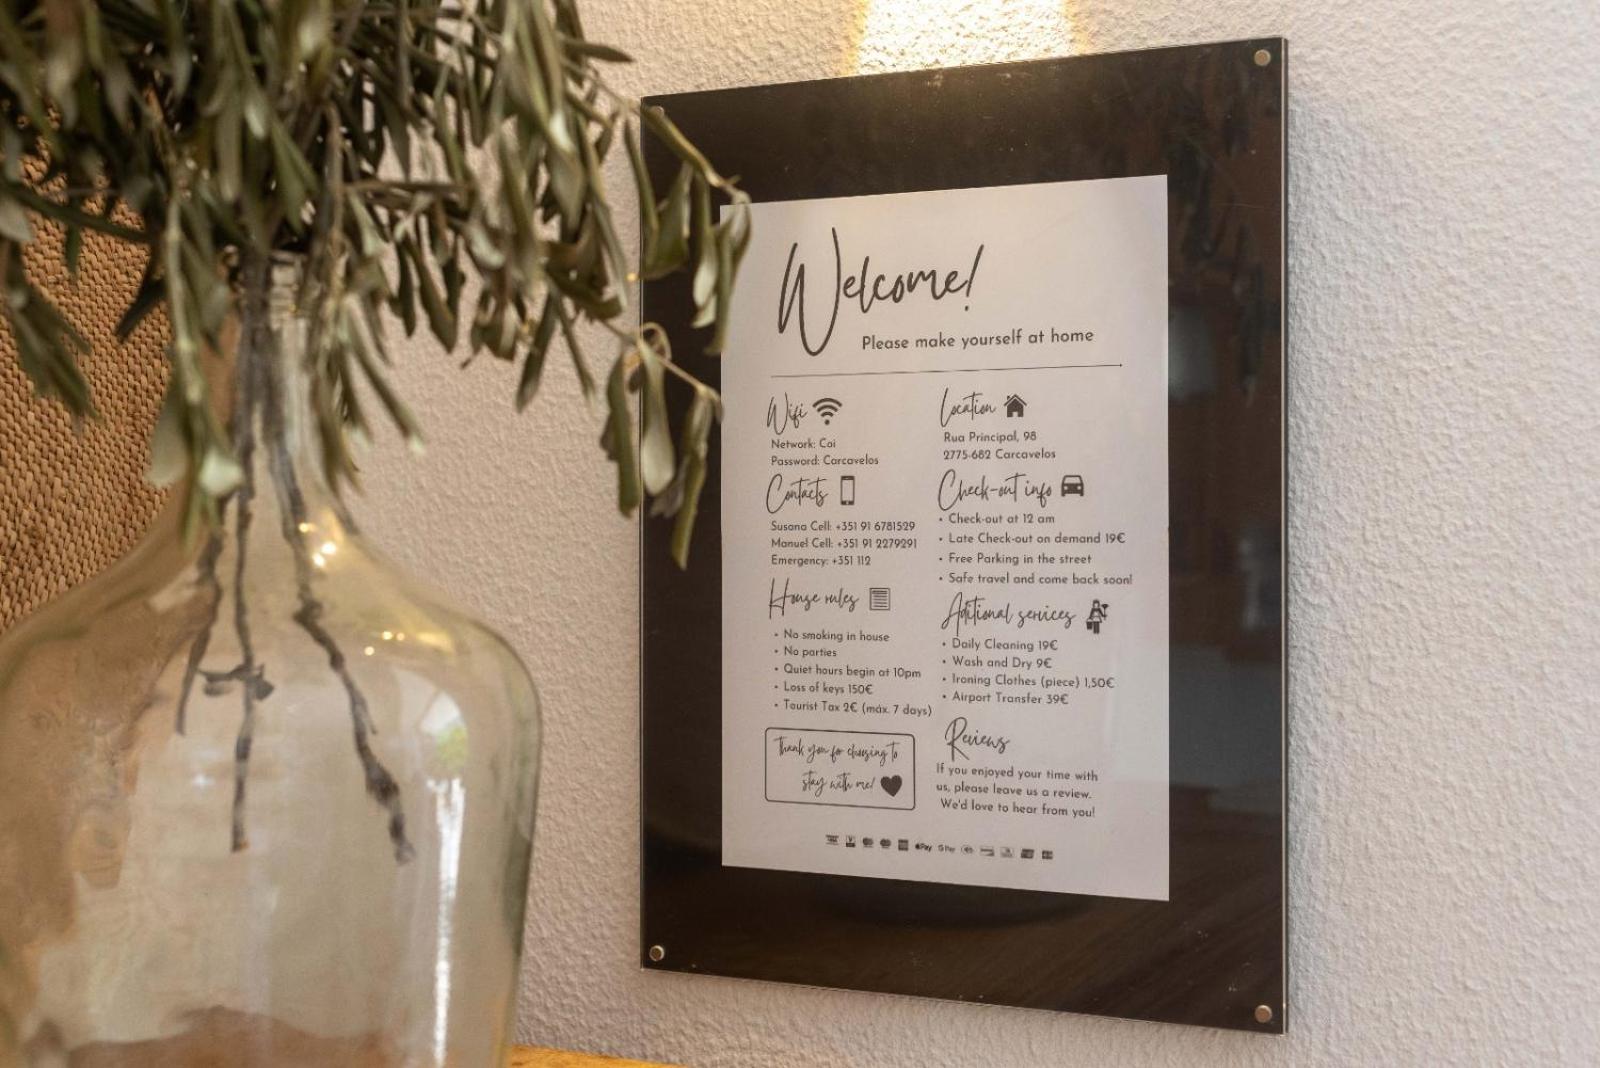 Welcome!
Please make yourself at home
Wifi
Network: Coi
Password: Carcavelos
Contacts
Susana Cell: +351 91 6781529
Manuel Cell: +351 91 2279291
Emergency: +351 112
House rules
• No smoking in house
• No parties
• Quiet hours begin at 10pm
• Loss of keys 150€
• Tourist Tax 2€ (máx. 7 days)
Thank you for choosing to
stay with me!
Location
Rua Principal, 98
2775-682 Carcavelos
Check-out info
• Check-out at 12 am
• Late Check-out on demand 19€
• Free Parking in the street
• Safe travel and come back soon!
Aditional services
• Daily Cleaning 19€
• Wash and Dry 9€
• Ironing Clothes (piece) 1,50€
• Airport Transfer 39€
Reviews
If you enjoyed your time with
us, please leave us a review.
We'd love to hear from you!
Pay G Pay